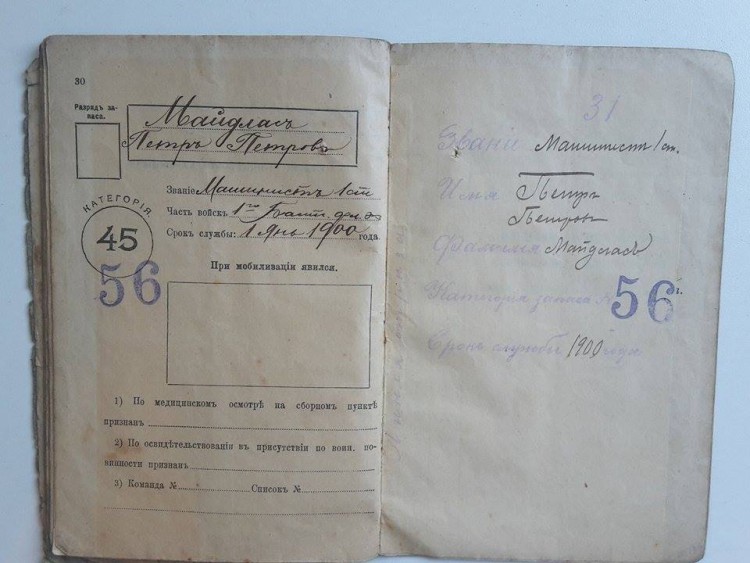 30
Разрядъ за-
паса.
Майдласъ
Петръ Петровъ
КАТЕГОРІЯ
45
56
Званіе Машинистъ 1 ст
Часть войскъ 1го
Срокъ службы: 1 Янв 1900 года.
При мобилизаціи явился.
1) По медицинскомъ осмотрѣ на сборномъ пунктѣ
признанъ
2) По освидѣтельствованіи въ присутствіи по воин. по-
винности признанъ
3) Команда № Списокъ №
31
Званіе Машинистъ 1 ст.
Имя Петръ
Петровъ
Фамилія Майдласъ
Категорія запаса 56
Срокъ службы 1900 года